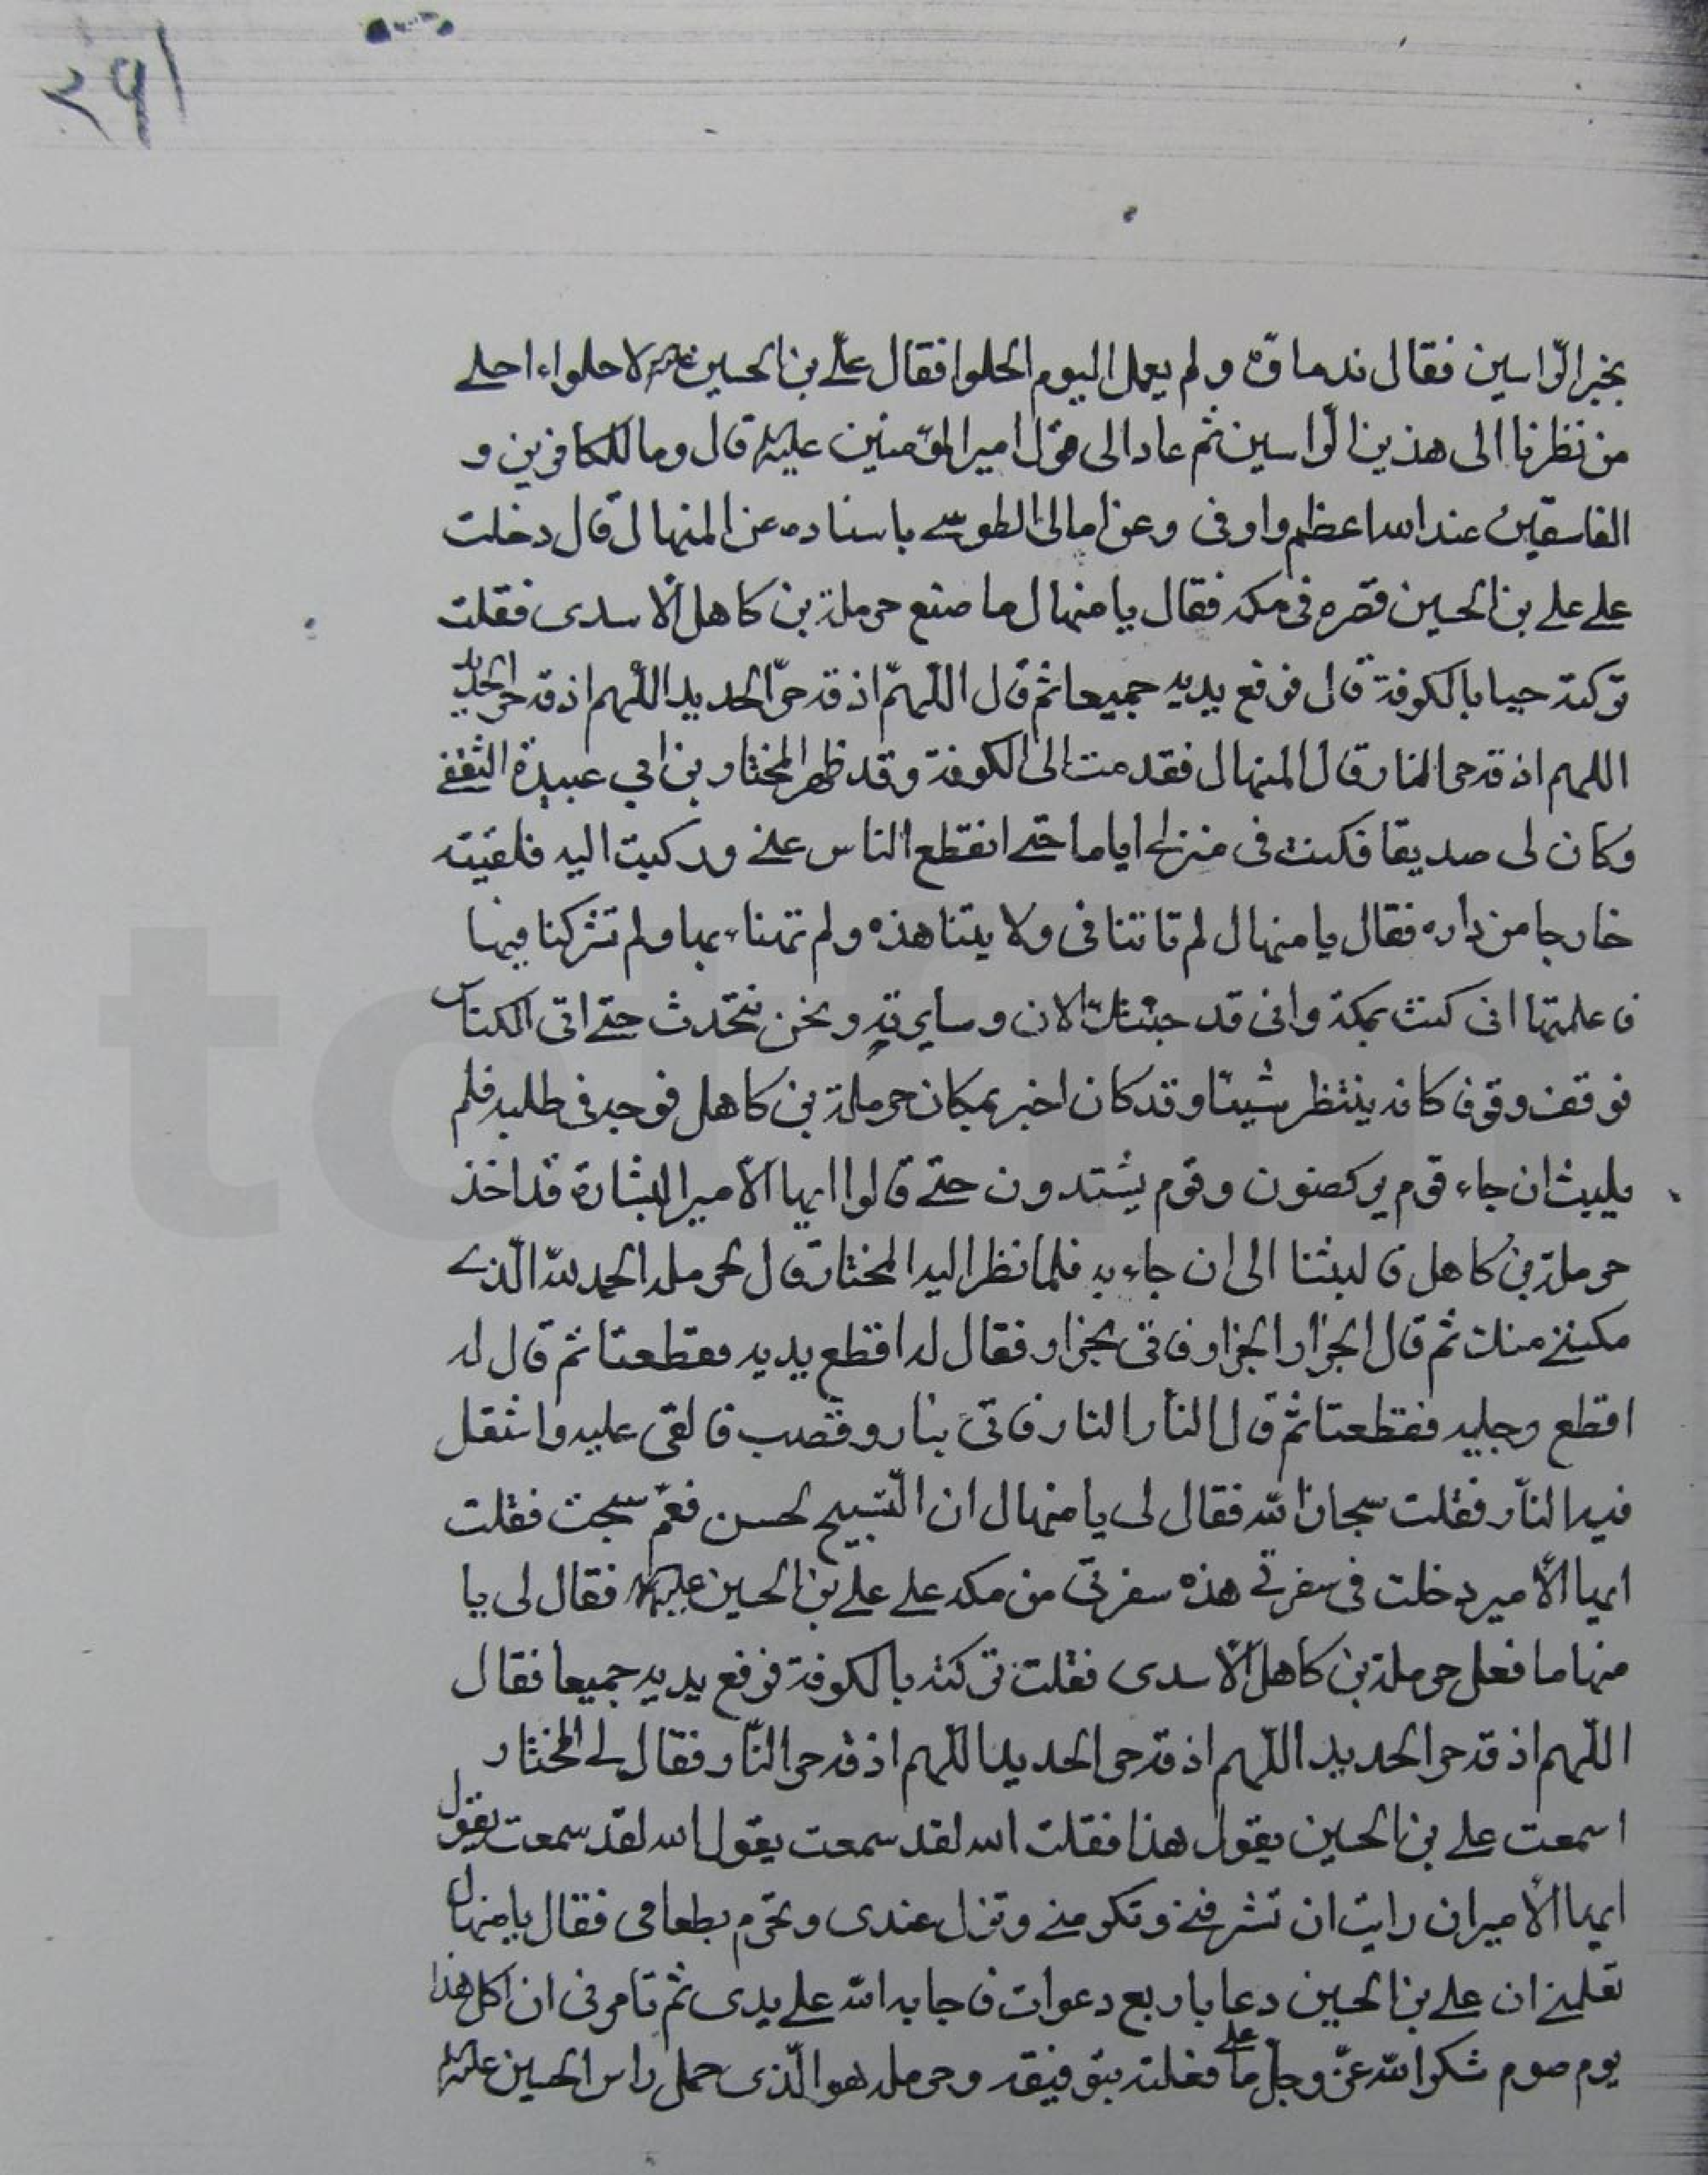 ۲۹۱
بخبر الرّاسين فقال ندماؤه ولم يعمل اليوم الحلوا فقال علّي بن الحسين عليهما لا حلواء احلى
من نظرنا الى هذين الرّاسين ثم عاد الى قول امير المؤمنين عليه قال وما للكافرين و
الفاسقين عند الله اعظم واوفى وعن امالى الطوسّى باسناده عن المنهال قال دخلت
على على بن الحسين فى مكه فقال يا منهال ما صنع حرملة بن كاهل الاسدى فقلت
تركته حيا بالكوفة قال فرفع يديه جميعا ثم قال اللّهمّ اذقه حرّ الحديد اللّهم اذقه حر الحديد
اللهم اذقه حر النار قال المنهال فقدمت الى الكوفة وقد ظهر المختار بن ابى عبيدة الثقفى
وكان لى صديقا فكنت فى منزلى اياما حتى انقطع الناس عنى وركبت اليه فلقيته
خارجا من داره فقال يا منهال لم تاتنا فى ولايتنا هذه ولم تهنناء بها ولم تشركنا فيها
فاعلمتها انى كنت بمكة وانى قد جئتك الان وسايرته ونحن نتحدث حتى اتى الكناس
فوقف وقوفا كانه ينتظر شيئا وقد كان اخبر بمكان حرملة بن كاهل فوجه فى طلبه فلم
يلبث ان جاء قوم يركضون وقوم يشتدون حتى قالوا ايها الامير البشارة قد اخذ
حرملة بن كاهل فا لبثنا الى ان جاء به فلما نظر اليه المختار قال لحرمله الحمد لله الّذى
مكننى منك ثم قال الجزار الجزار فاتى بجزار فقال له اقطع يديه فقطعتا ثم قال له
اقطع رجليه فقطعتا ثم قال النار النار فاتى بنار وقصب فالقى عليه واشتعل
فيه النار فقلت سبحان الله فقال لى يا منهال ان التّسبيح لحسن ففيم سبحت فقلت
ايها الامير دخلت فى سفرتى هذه سفرتى من مكه على علّى بن الحسين عليهما فقال لى يا
منها ما فعل حرملة بن كاهل الاسدى فقلت تركته بالكوفة فرفع يديه جميعا فقال
اللّهم اذقه حر الحديد اللّهم اذقه حر الحديد اللّهم اذقه حر النّار فقال لى المختار
اسمعت على بن الحسين يقول هذا فقلت الله لقد سمعت يقول الله لقد سمعت يقول
ايها الامير ان رايت ان تشرفنى وتكرمنى وتنزل عندى وتحرّم بطعامى فقال يا منهال
تعلمنى ان على بن الحسين دعا باربع دعوات فاجابه الله على يدى ثم تامرنى ان اكل هذا
يوم صوم شكرا لله عزّ وجلّ على ما فعلته بتوفيقه وحرمله هو الّذى حمل راس الحسين عليه
totfim